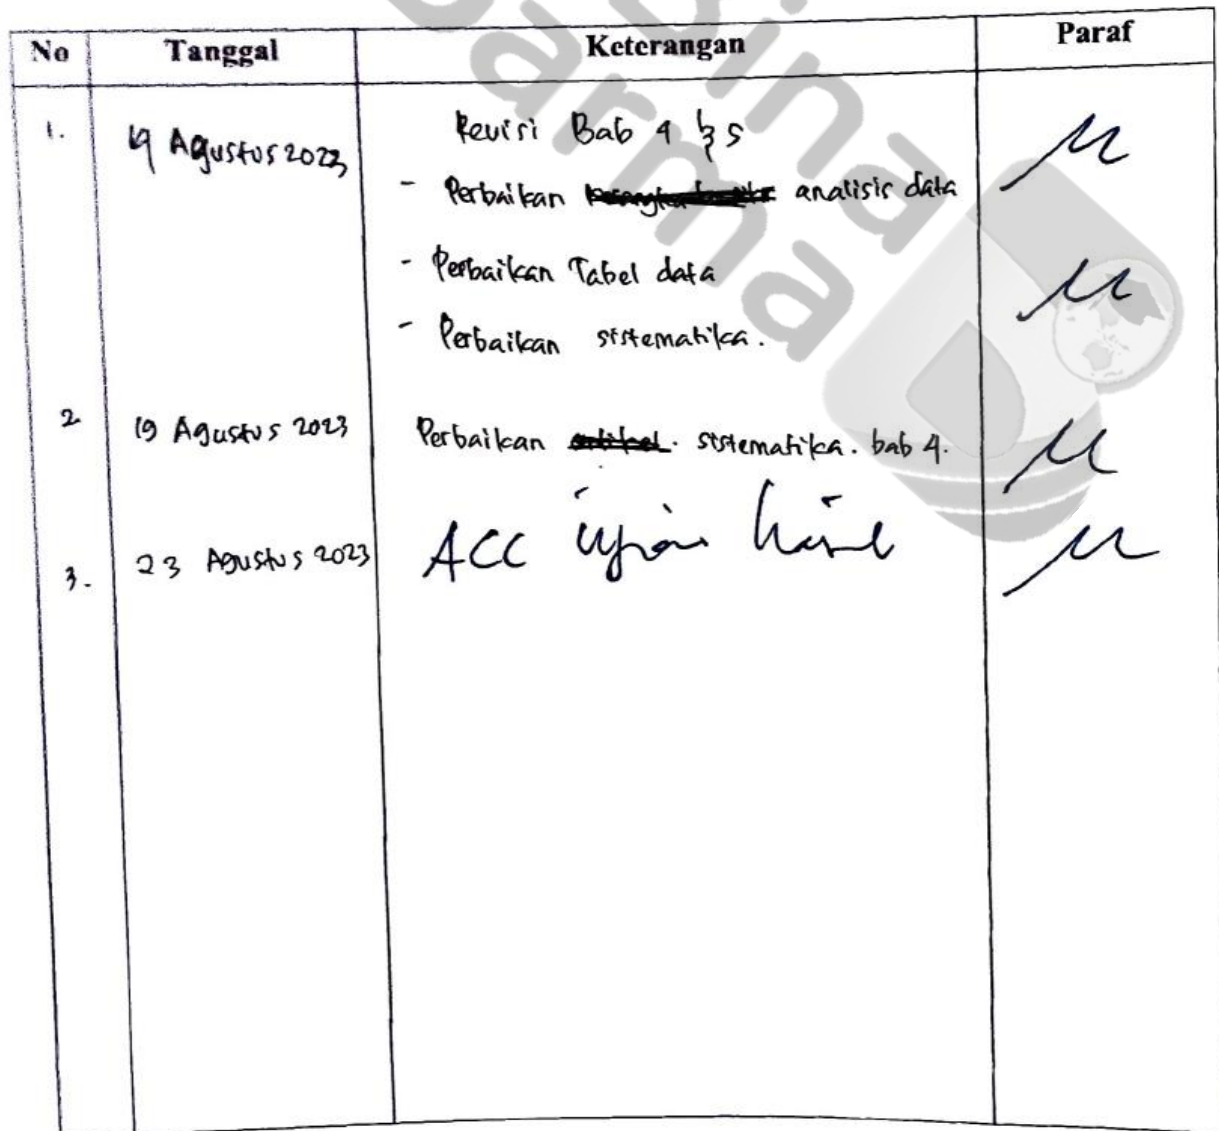 bina
darma
No Tanggal Keterangan Paraf
1. Agustus 2023 Revisi Bab 4 & 5
- Perbaikan analisis data
- Perbaikan Tabel data
- Perbaikan sistematika.
2. 19 Agustus 2023 Perbaikan artikel. sistematika. bab 4.
3. 23 Agustus 2023 ACC Ujian hasil